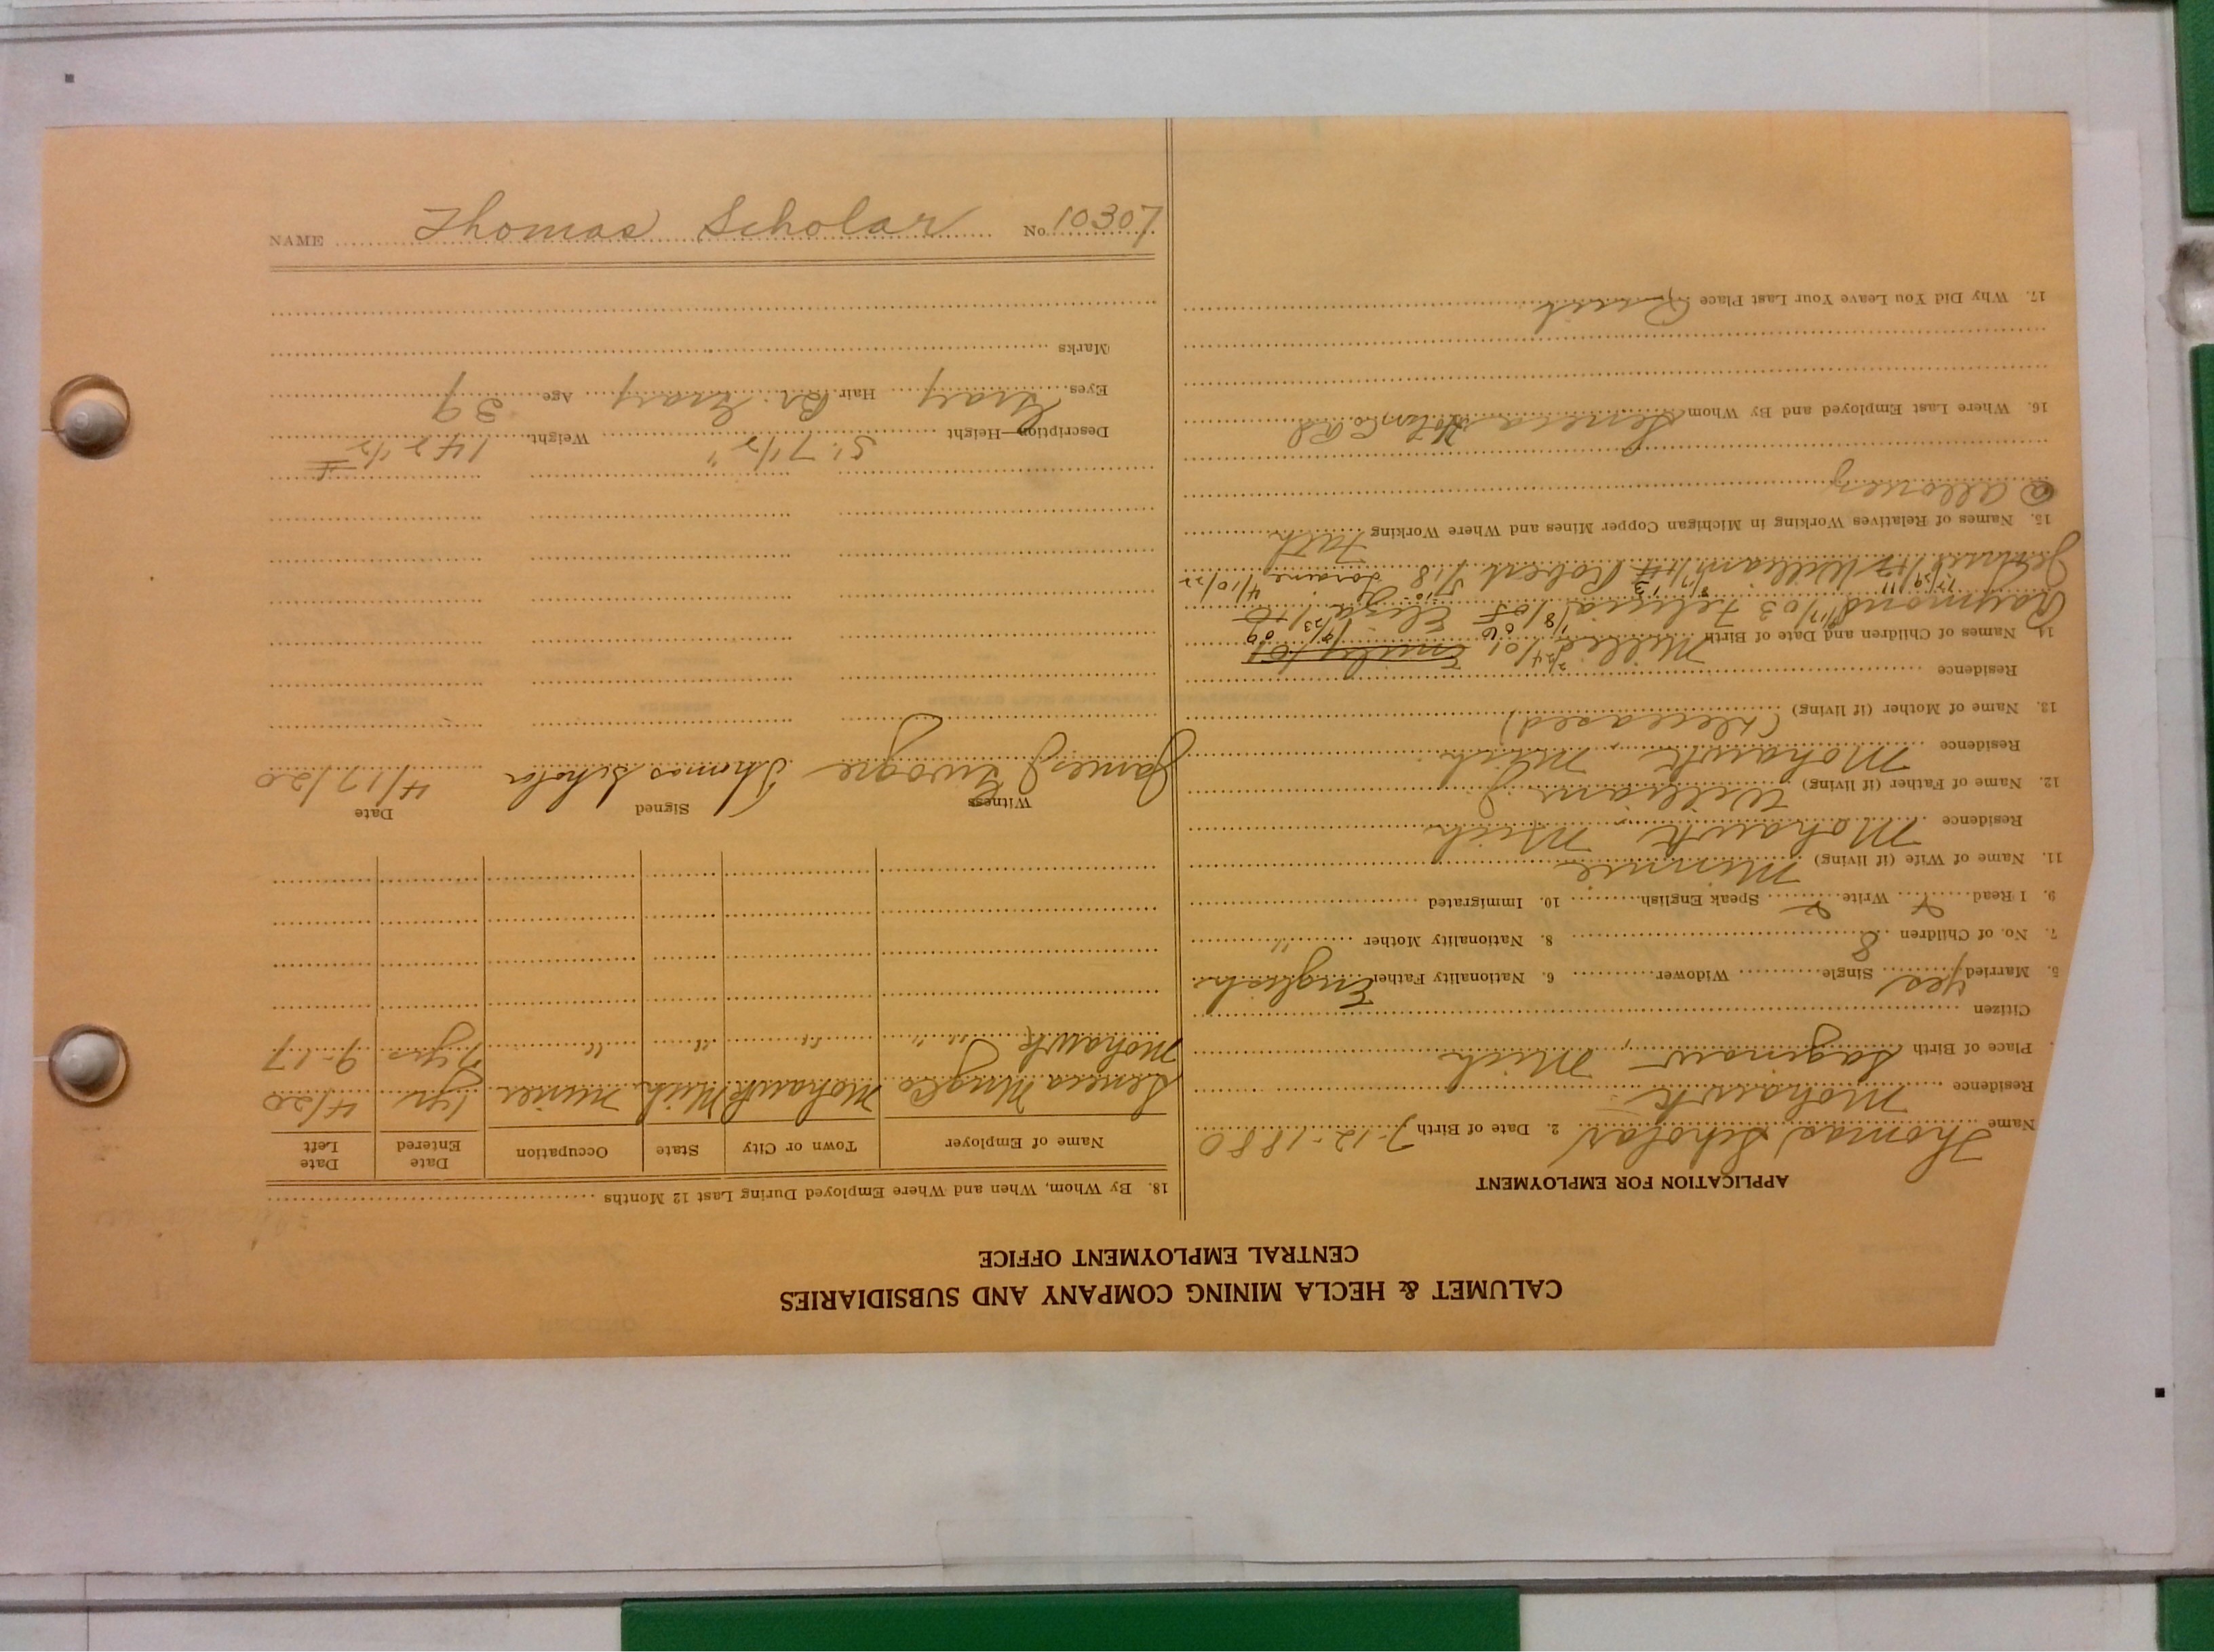 CALUMET & HECLA MINING COMPANY AND SUBSIDIARIES
CENTRAL EMPLOYMENT OFFICE
APPLICATION FOR EMPLOYMENT
Name Thomas Scholar 2. Date of Birth 7-12-1880
Residence Mohawk
Place of Birth Saginaw, Mich
Citizen
5. Married yes Single Widower 6. Nationality Father English
7. No. of Children 8 8. Nationality Mother "
9. I Read Write Speak English 10. Immigrated
11. Name of Wife (if living) Minnie
Residence Mohawk, Mich
12. Name of Father (if living) William
Residence Mohawk, Mich
13. Name of Mother (if living) (Deceased)
Residence
14. Names of Children and Date of Birth
Raymond
William Robert Loraine 4/10/22
15. Names of Relatives Working in Michigan Copper Mines and Where Working
16. Where Last Employed and By Whom Seneca
17. Why Did You Leave Your Last Place Quit
18. By Whom, When and Where Employed During Last 12 Months
Name of Employer Town or City State Occupation Date Entered Date Left
Seneca Mng Co Mohawk Mich. miner 1 yr 4/20
Mohawk " " " " " 7 yrs 9-17
Witness Signed Date
James Thomas Scholar 4/17/20
Description—Height 5' 7 1/2" Weight 142 1/2 #
Eyes Gray Hair Br. Gray Age 39
Marks
NAME Thomas Scholar No. 10307